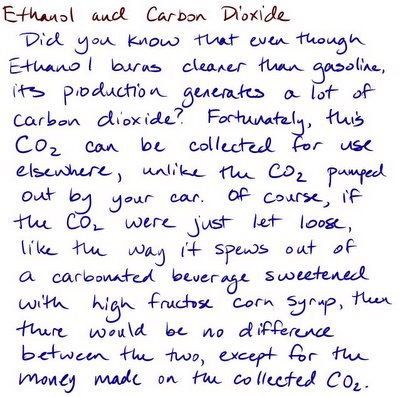 Ethanol and Carbon Dioxide
Did you know that even though
Ethanol burns cleaner than gasoline,
its production generates a lot of
carbon dioxide? Fortunately, this
CO2 can be collected for use
elsewhere, unlike the CO2 pumped
out by your car. Of course, if
the CO2 were just let loose,
like the way it spews out of
a carbonated beverage sweetened
with high fructose corn syrup, then
there would be no difference
between the two, except for the
money made on the collected CO2.